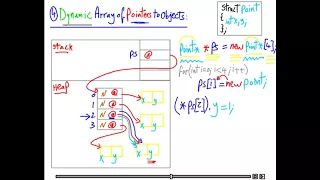 ④ Dynamic Array of Pointers to Objects:
struct Point
{
int x,y;
};
stack
ps @
Heap
0 N @
1 N @
2 N @
3 N @
x y
x y
x y
x y
Point* *ps = new Point*[4];
for(int i=0; i<4; i++)
ps[i] = new Point;
(*ps[2]).y = 1;